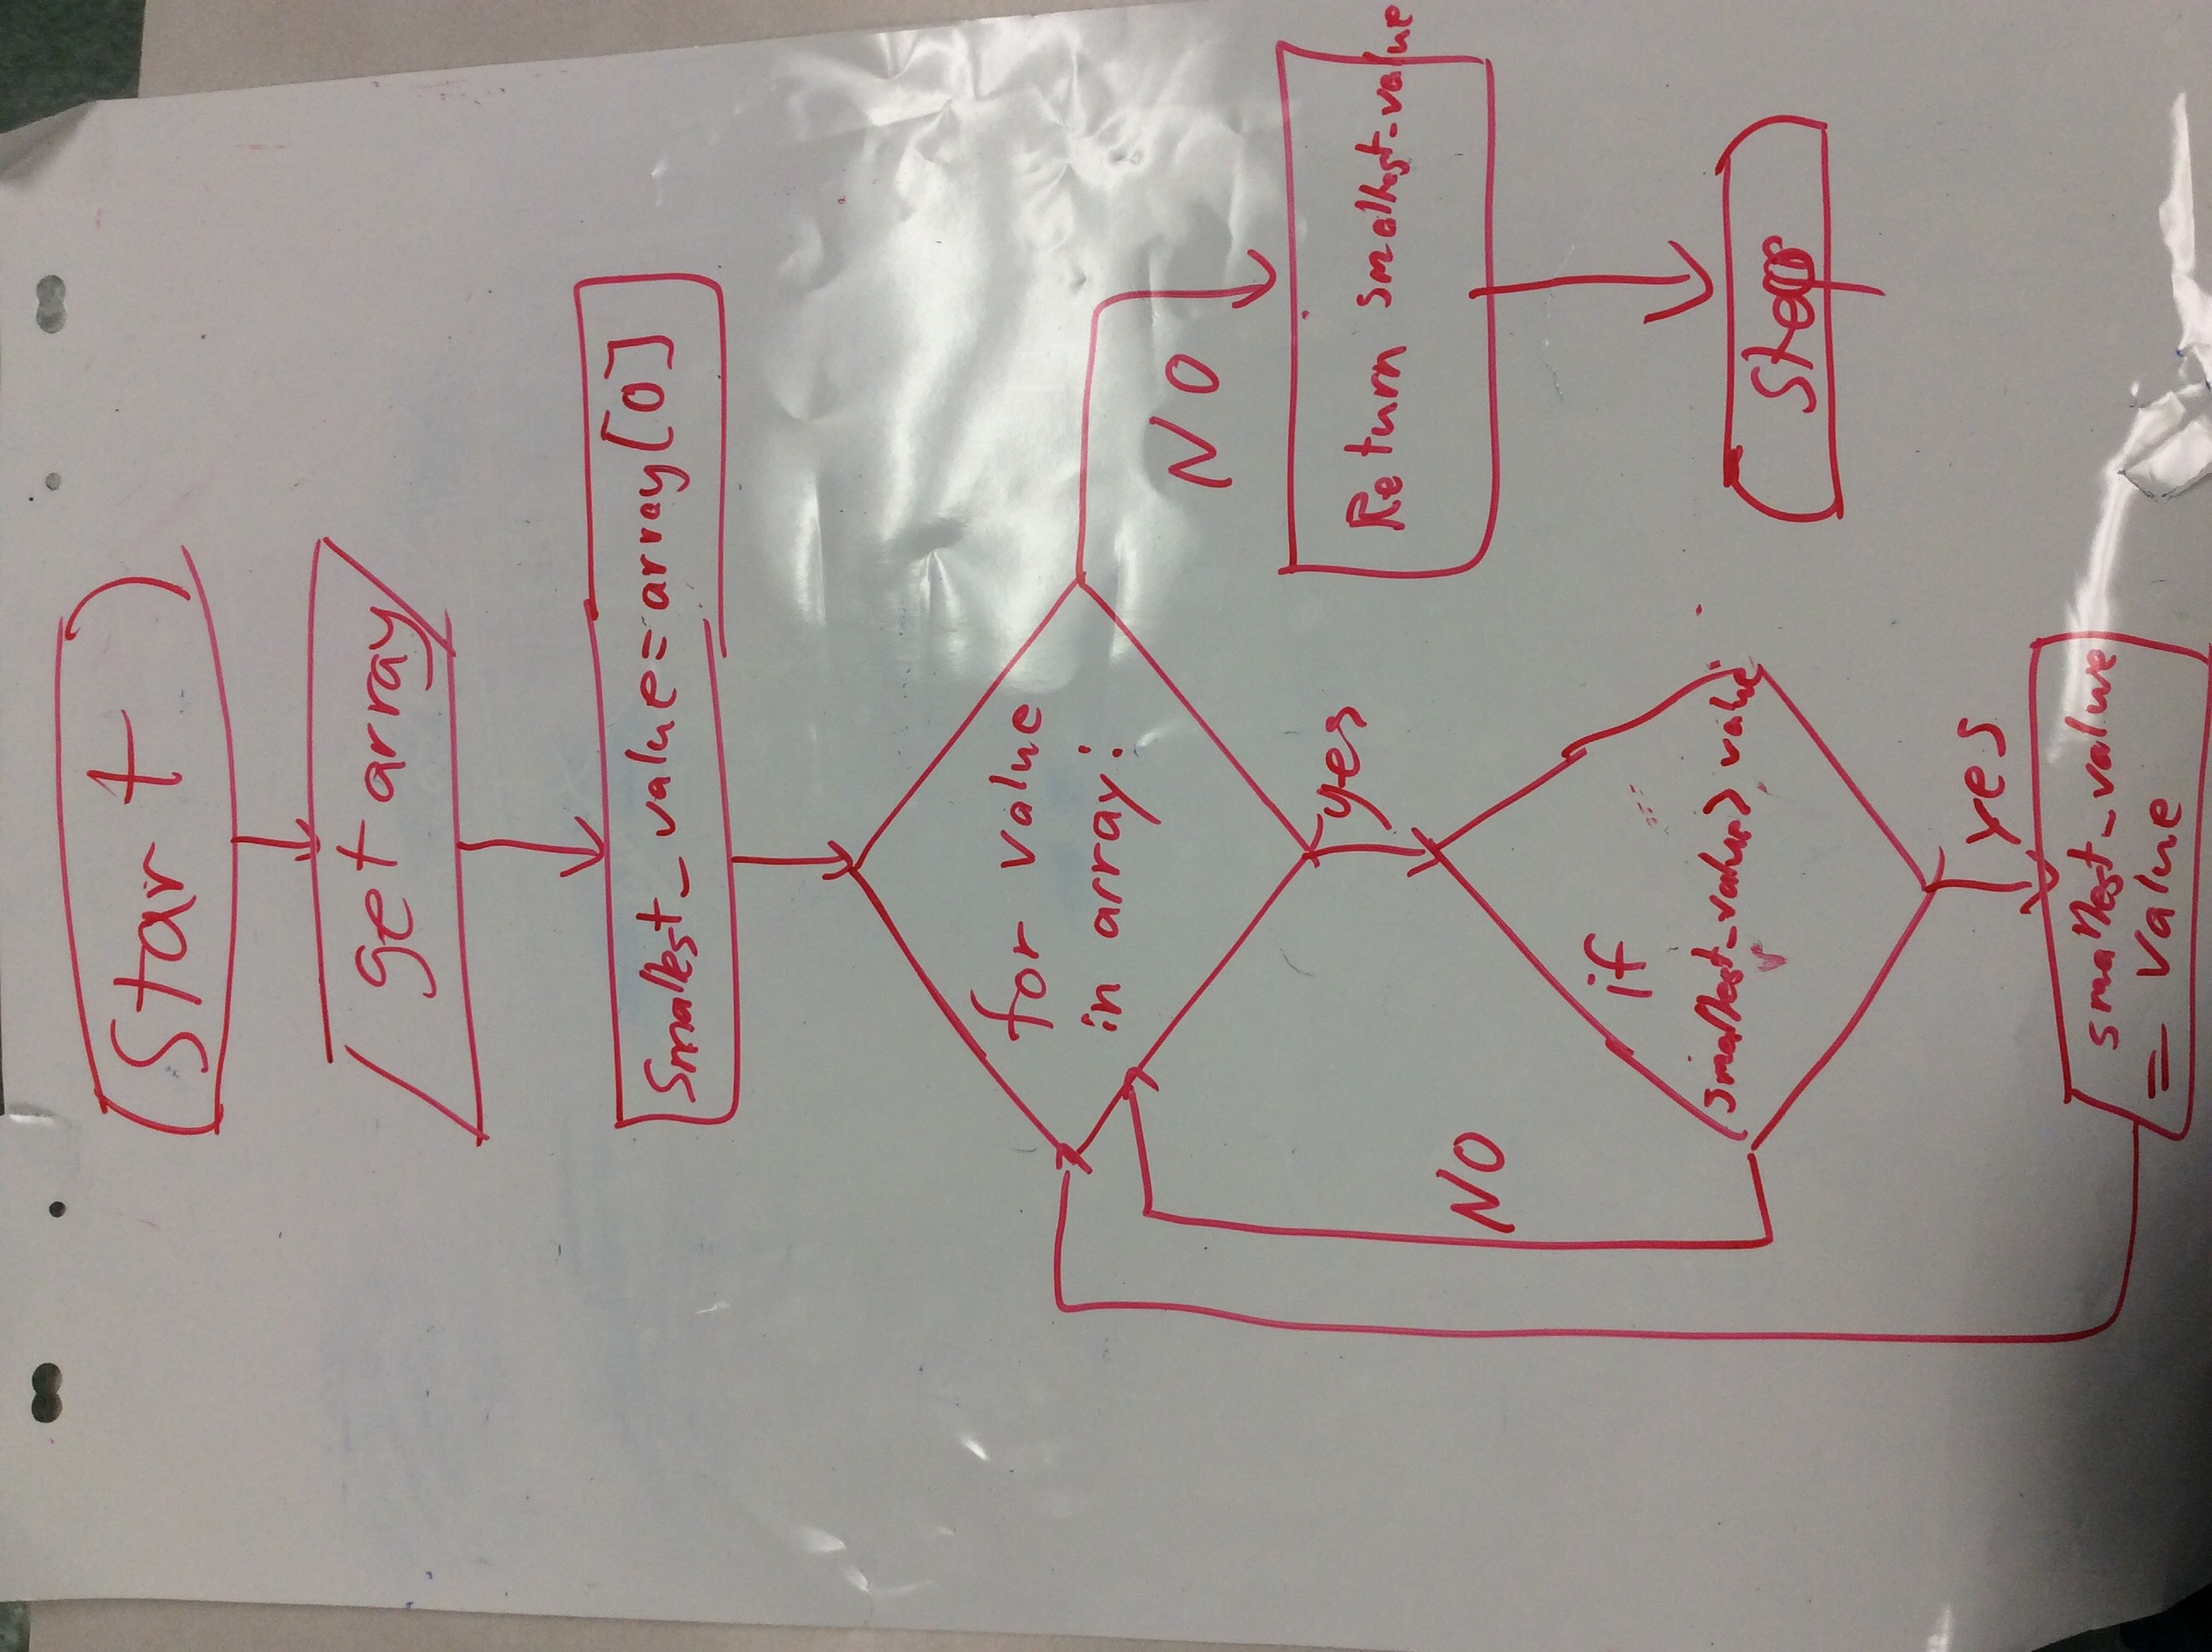 Start
get array
Smallest_value=array[0]
for value
in array:
NO
yes
Return smallest-value
NO
if
smallest_value> value
Stop
yes
smallest_value
= value